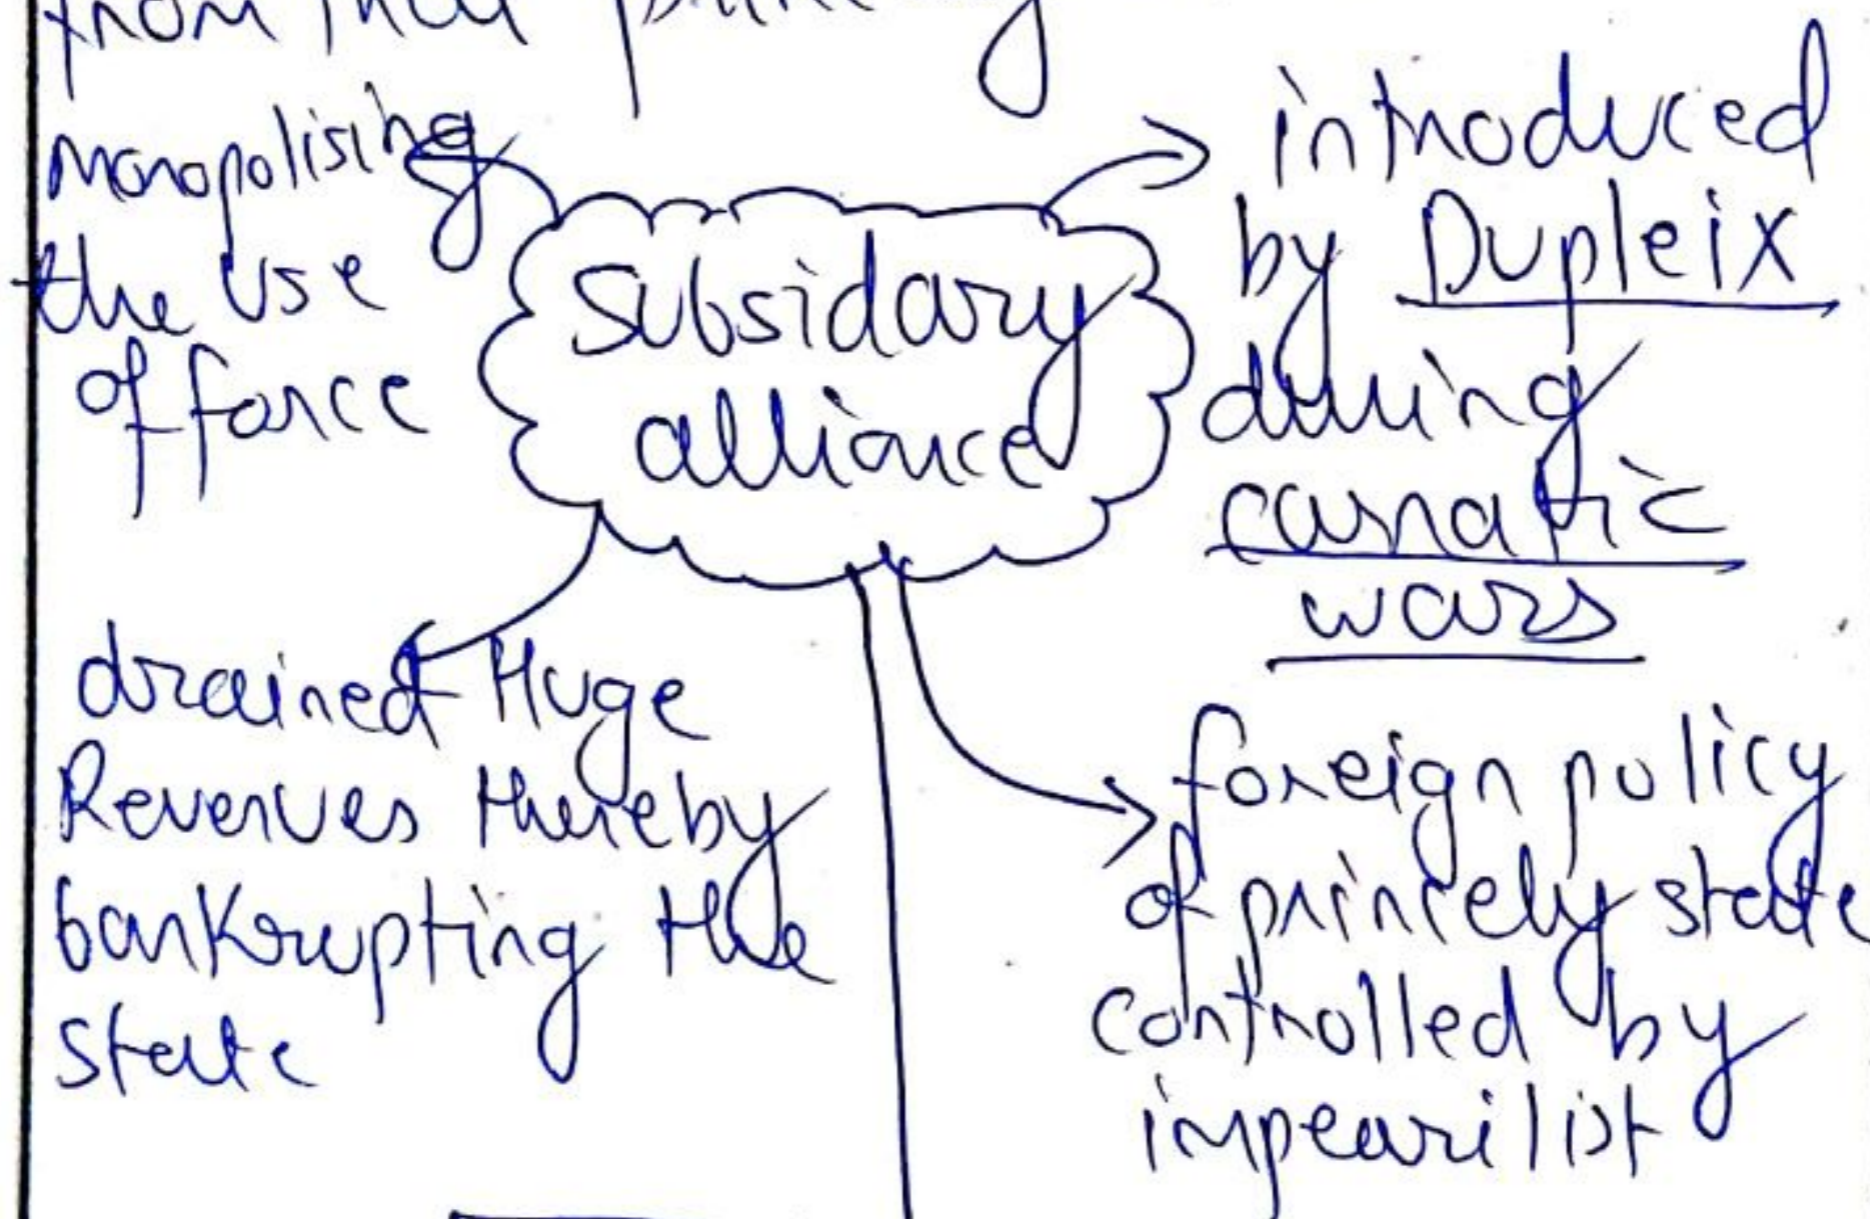 from
monopolising
the use
of force
subsidary
alliance
introduced
by Dupleix
during
carnatic
wars
drained Huge
Revenues thereby
bankrupting the
state
foreign policy
of princely state
controlled by
impearilist